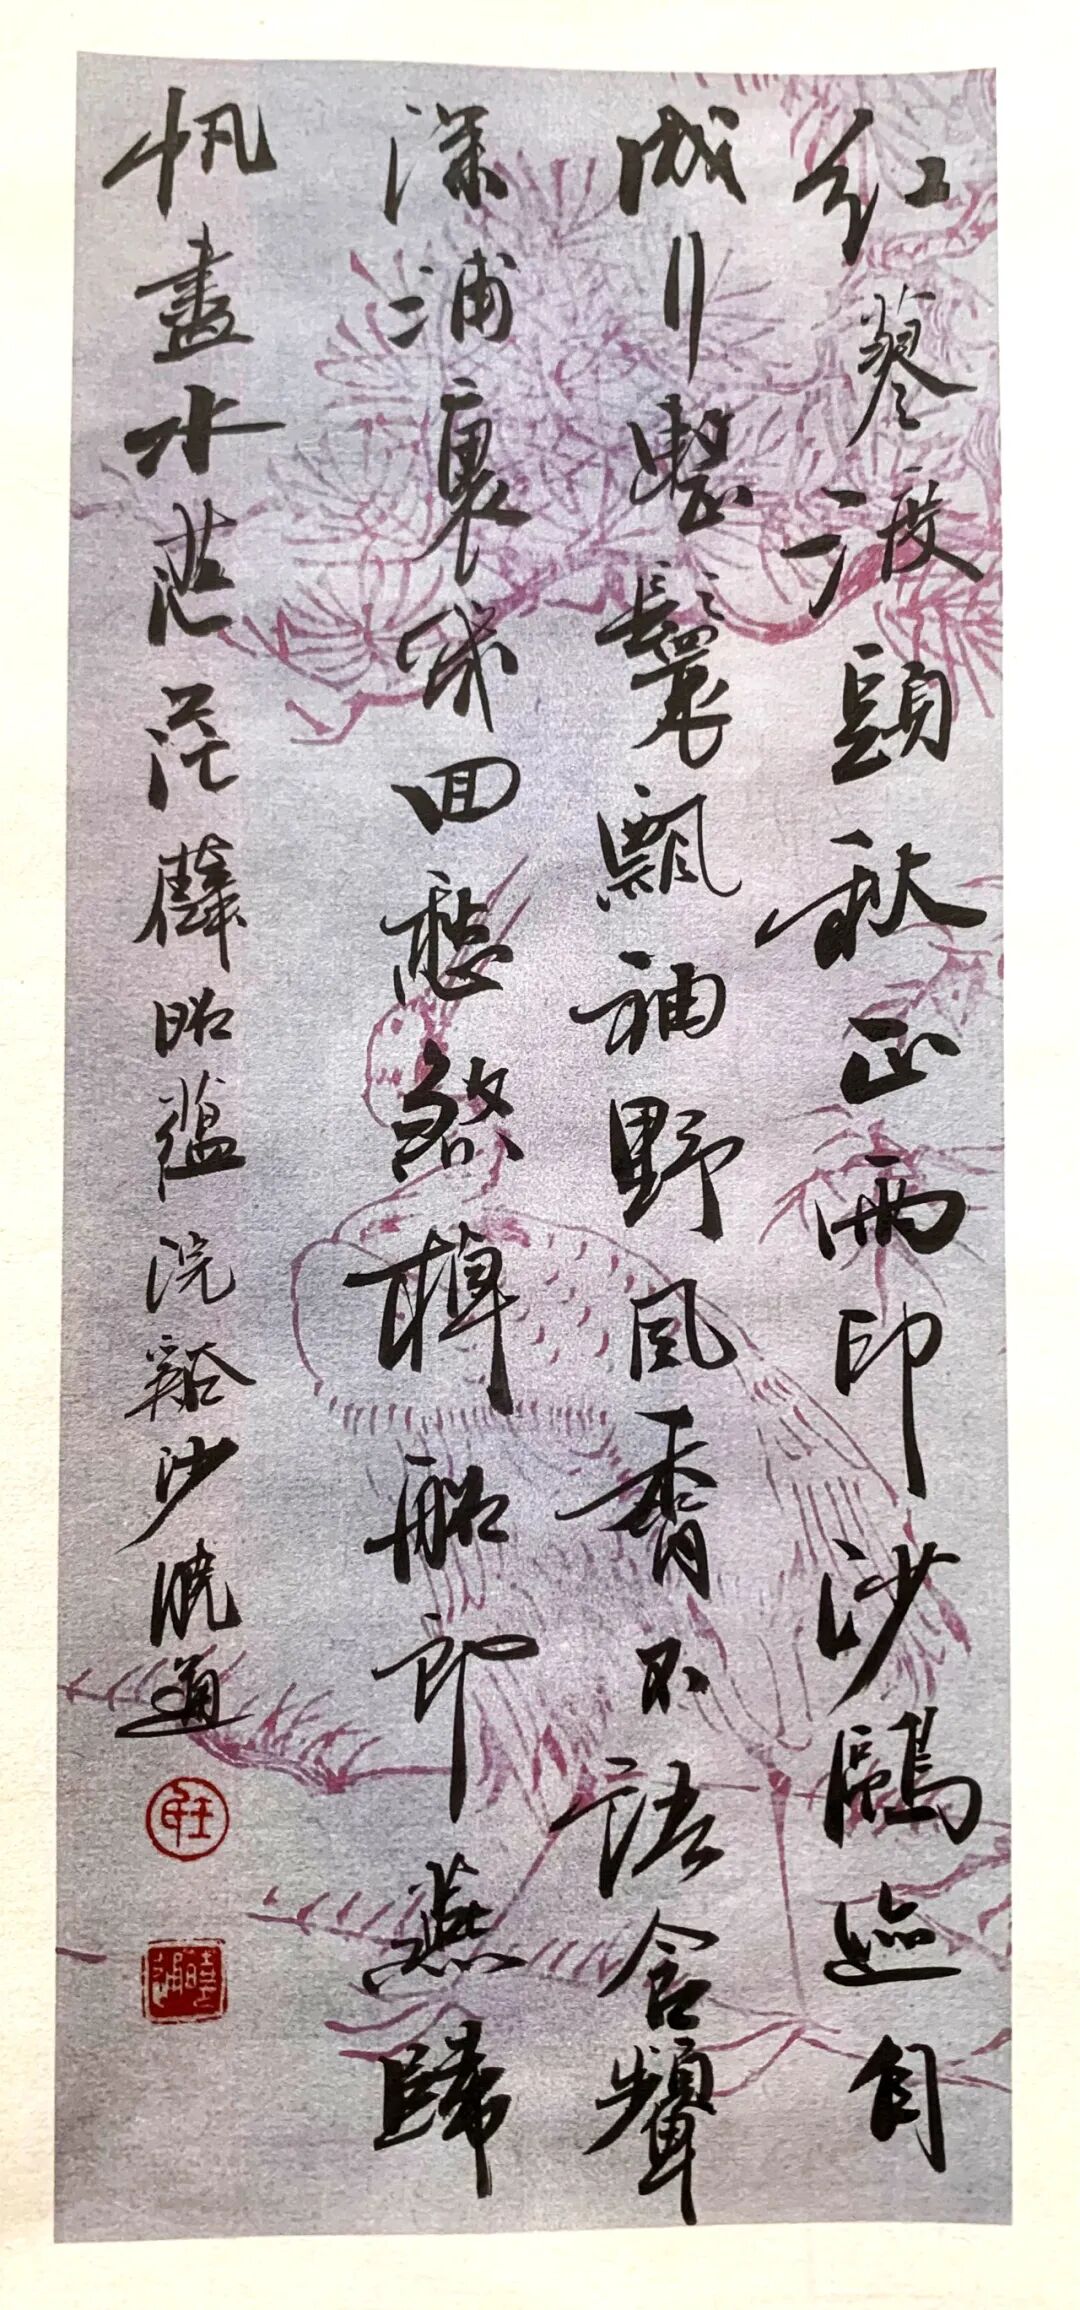 紅蓼渡頭秋正雨印沙鷗迹自
成行整鬟飄袖野風香不語含顰
深浦裏幾回愁煞棹船郎燕歸
帆盡水茫茫薛昭蘊浣谿沙曉通